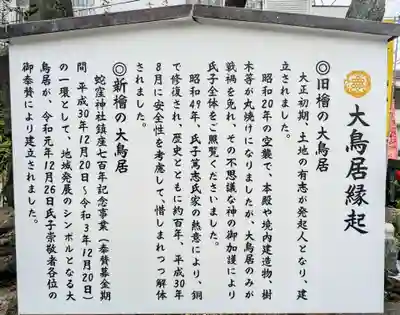 大鳥居縁起
◎旧檜の大鳥居
大正初期、土地の有志が発起人となり、建
立されました。
昭和20年の空襲で、本殿や境内建造物、樹
木等が丸焼けになりましたが、大鳥居のみが
戦禍を免れ、その不思議な神の御加護により
氏子全体をご照覧くださいました。
昭和49年、氏子篤志氏家の熱意により、銅
で修復され、歴史とともに約百年、平成30年
8月に安全性を考慮して、惜しまれつつ解体
されました。
◎新檜の大鳥居
蛇窪神社鎮座七百年記念事業（奉賛募金期
間 平成30年12月20日～令和3年12月20日）
の一環として、地域発展のシンボルとなる大
鳥居が、令和元年12月26日氏子崇敬者各位の
御奉賛により建立されました。